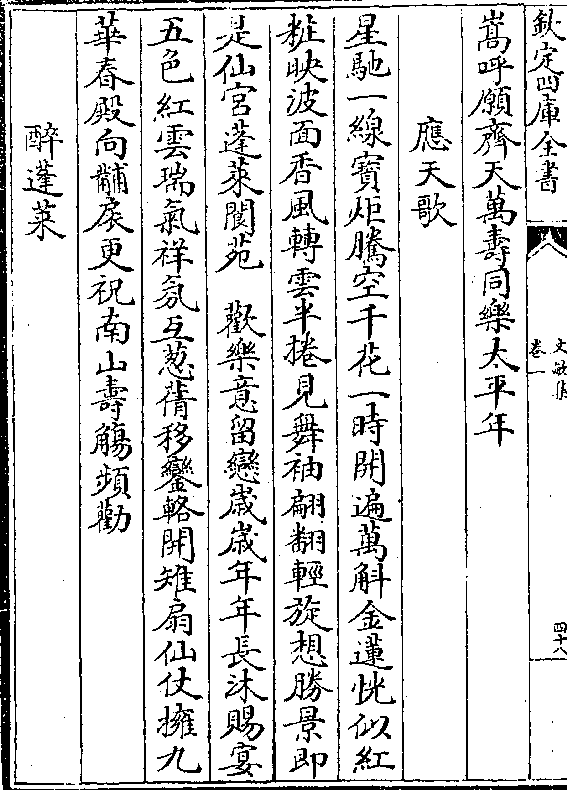 欽定四庫全書
文敏集
卷一
四十八
嵩呼願齊天萬壽同樂太平年
應天歌
星馳一線寶炬騰空千花一時開遍萬斛金蓮恍似紅
粧映波面香風轉雲半捲見舞袖翩翻輕旋想勝景即
是仙宮蓬萊閬苑　歡樂意留戀歲歲年年長沐賜宴
五色紅雲瑞氣祥氛互葱蒨移鑾輅開雉扇仙仗擁九
華春殿向黼扆更祝南山壽觴頻勸
醉蓬萊